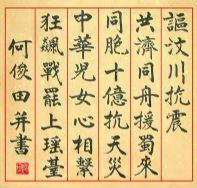 謳汶川抗震
共濟同舟援蜀來
同胞十億抗天災
中華兒女心相繫
狂飆戰罷上瑤臺
何俊田并書